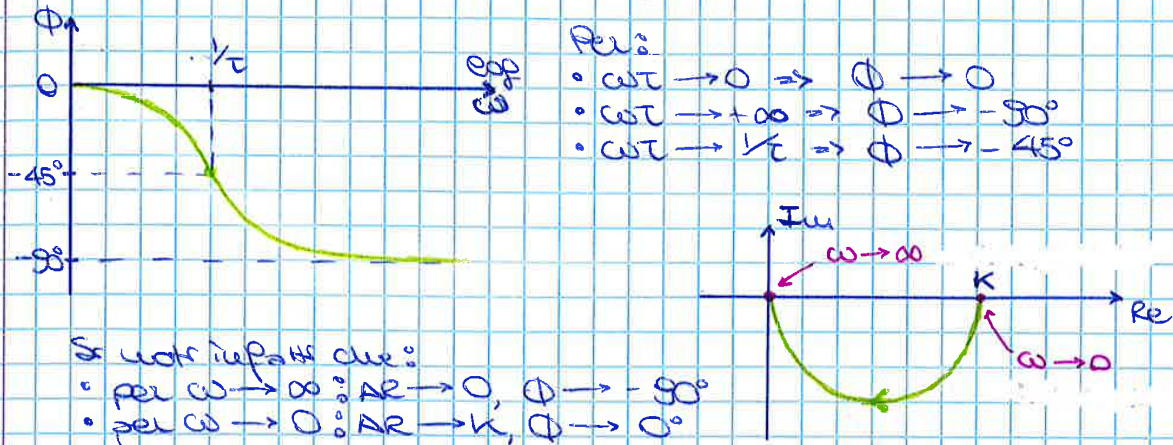 Φ
1/τ
0
log
ω
-45°
-90°
Per:
• ωτ → 0 => Φ → 0
• ωτ → +∞ => Φ → -90°
• ωτ → 1/τ => Φ → -45°
Im
ω→∞
K
Re
ω→0
Si noti infatti che:
• per ω → ∞ : AR → 0, Φ → -90°
• per ω → 0 : AR → K, Φ → 0°